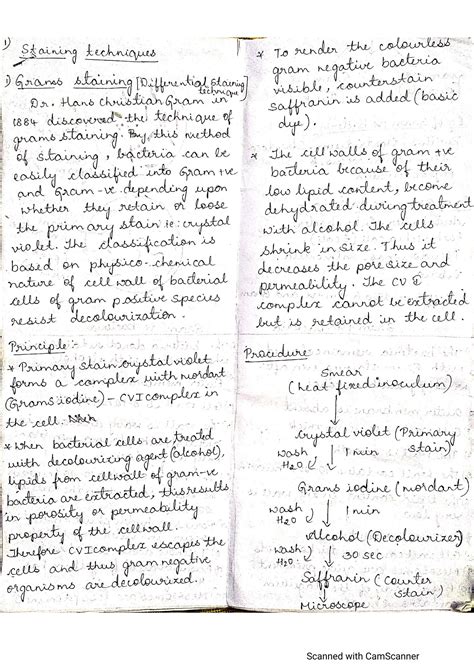 1) Staining techniques
1) Grams staining [Differential staining
technique]
Dr. Hans Christian Gram in
1884 discovered the technique of
grams staining. By this method
of staining, bacteria can be
easily classified into Gram +ve
and Gram -ve depending upon
whether they retain or loose
the primary stain ie: crystal
violet. The classification is
based on physico-chemical
nature of cell wall of bacterial
cells of gram positive species
resist decolourization.
Principle:
* Primary stain crystal violet
forms a complex with mordant
(Grams iodine) - CVI complex in
the cell.
* When bacterial cells are treated
with decolourizing agent (alcohol),
lipids from cellwall of gram -ve
bacteria are extracted, this results
in porosity or permeability
property of the cellwall.
Therefore CVI complex escapes the
cells and thus gram negative
organisms are decolourized.
* To render the colourless
gram negative bacteria
visible, counterstain
saffranin is added (basic
dye).
* The cell walls of gram +ve
bacteria because of their
low lipid content, become
dehydrated during treatment
with alcohol. The cells
shrink in size. Thus it
decreases the pore size and
permeability. The CV I
complex cannot be extracted
but is retained in the cell.
Procedure:
Smear
(heat fixed inoculum)
Crystal violet (Primary
stain)
wash H2O 1 min
Grams iodine (mordant)
wash H2O 1 min
Alcohol (Decolourizer)
wash H2O 30 sec
Saffranin (counter
stain)
Microscope
Scanned with CamScanner